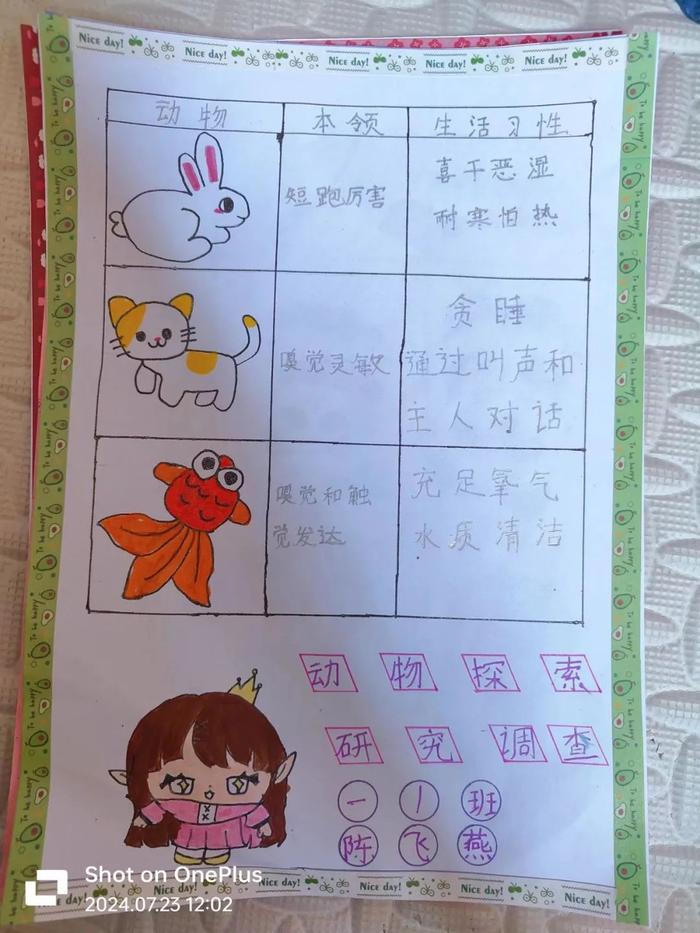 Nice day! Nice day! Nice day! Nice day! Nice day!
动物 本领 生活习性
短跑厉害
喜干恶湿
耐寒怕热
嗅觉灵敏
贪睡
通过叫声和
主人对话
嗅觉和触
觉发达
充足氧气
水质清洁
动物探索
研究调查
一1班
陈飞燕
To be happy!
Nice day! Nice day! Nice day! Nice day! Nice day! Nice day!
Shot on OnePlus
2024.07.23 12:02